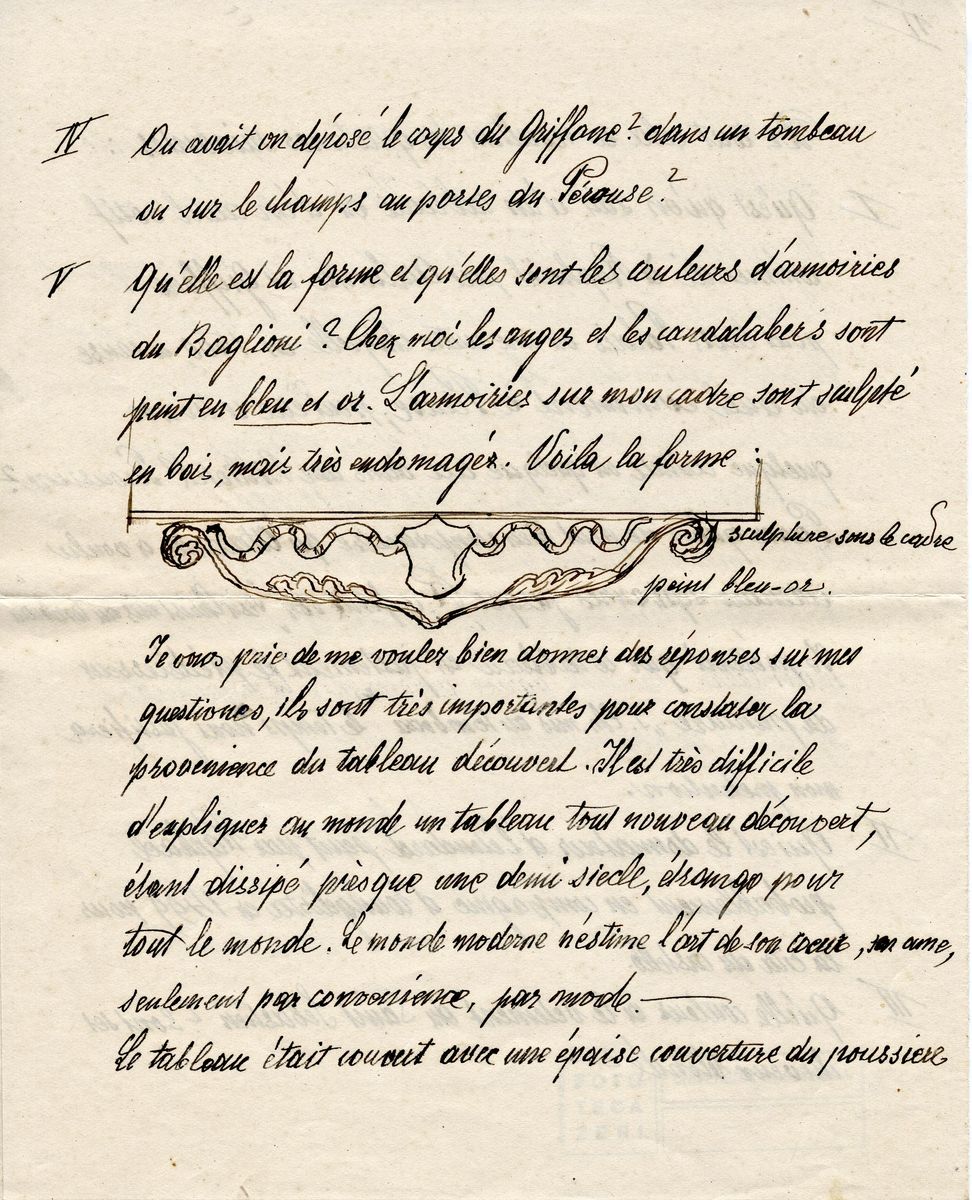 IV Ou avait on déposé le corps du Griffone? dans un tombeau
ou sur le champs au portes du Pérouse?
V Qu'elle est la forme et qu'elles sont les couleurs d'armoiries
du Baglioni? Chez moi les anges et les candalabers sont
peint en bleu et or. L'armoiries sur mon cadre sont sculpté
en bois, mais très endomagéz. Voila la forme :
sculpture sous le cadre
peint bleu-or.
Je vous prie de me voulez bien donner des réponses sur mes
questiones, ils sont très importantes pour constater la
provenience du tableau découvert. Il est très difficile
d'expliquer au monde un tableau tout nouveau découvert,
étant dissipé présque une demi siecle, étrange pour
tout le monde. Le monde moderne n'éstime l'art de son coeur, son ame,
seulement par convenience, par mode. —
Le tableau était couvert avec une épaise couverture du poussiere